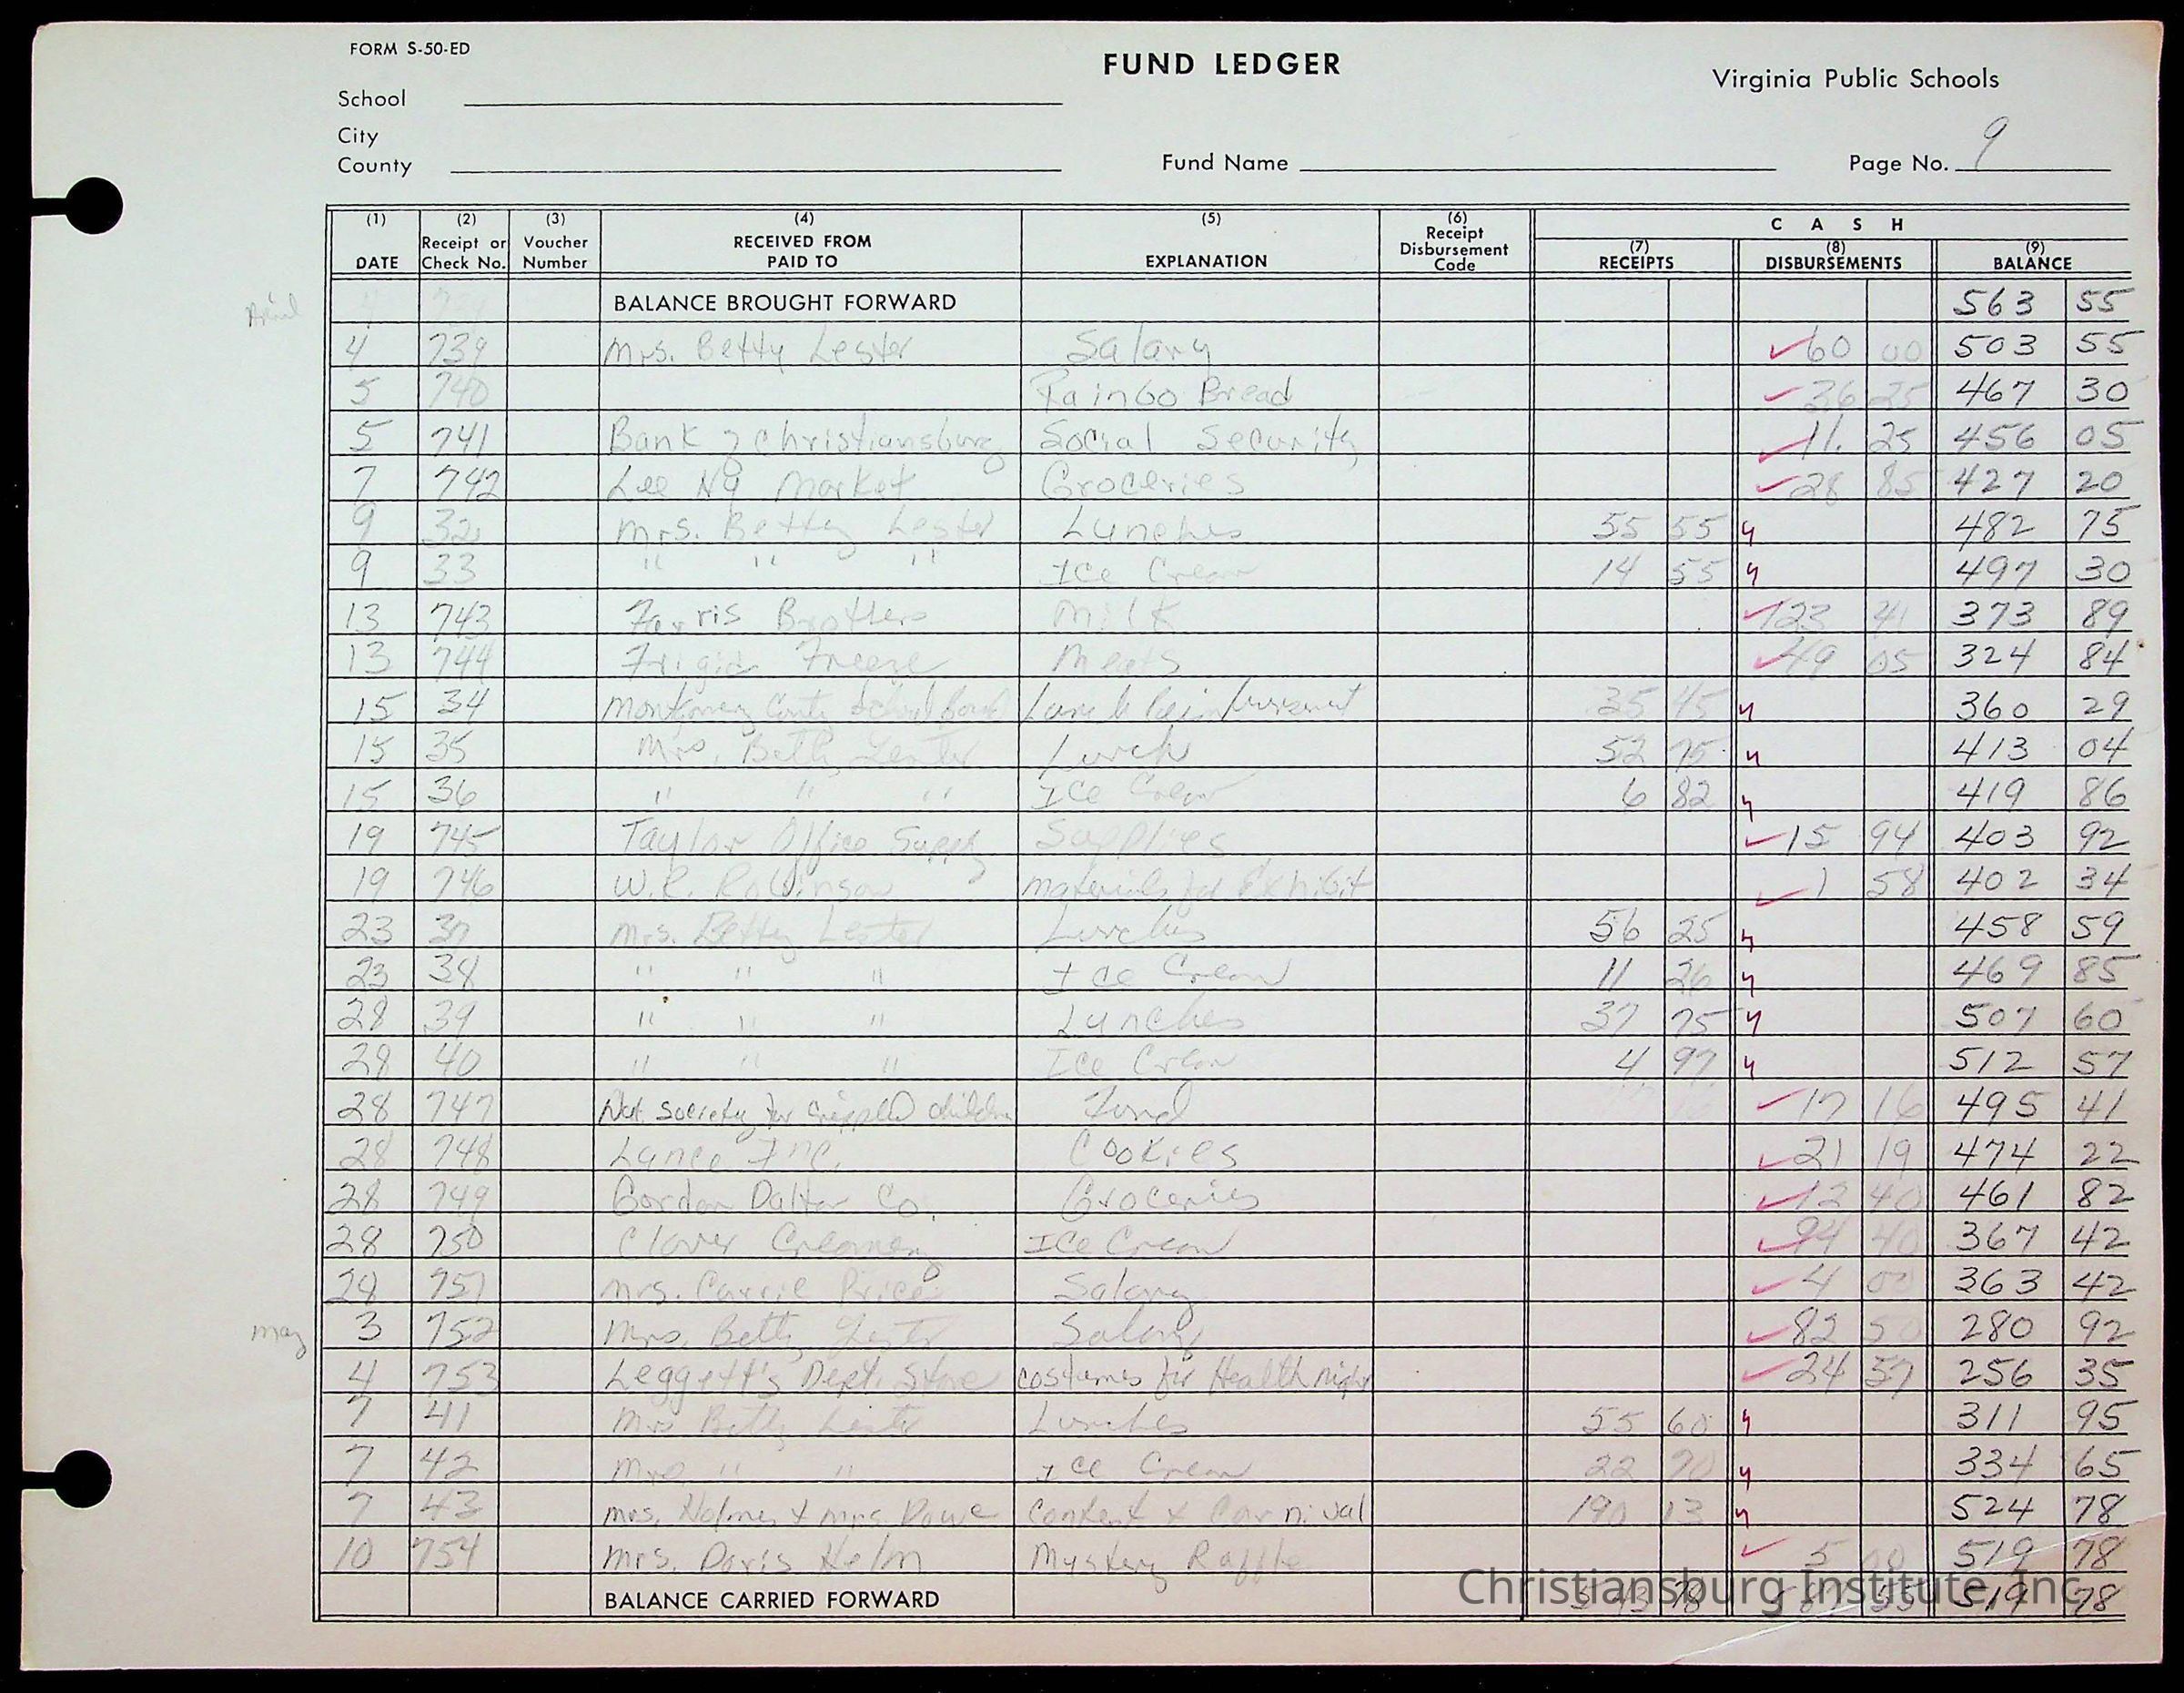 FORM S-50-ED
FUND LEDGER
Virginia Public Schools
School
City
County
Fund Name
Page No. 9
(1) DATE (2) Receipt or Check No. (3) Voucher Number (4) RECEIVED FROM PAID TO (5) EXPLANATION (6) Receipt Disbursement Code CASH (7) RECEIPTS (8) DISBURSEMENTS (9) BALANCE
April BALANCE BROUGHT FORWARD 563 55
4 739 Mrs. Betty Lester Salary 60 00 503 55
5 740 Rainbo Bread 36 25 467 30
5 741 Bank of Christiansburg Social Security 11. 25 456 05
7 742 Lee Hy Market Groceries 28 85 427 20
9 32 Mrs. Betty Lester Lunches 55 55 482 75
9 33 " " " Ice Cream 14 55 497 30
13 743 Farris Brothers Milk 123 41 373 89
13 744 Frigid Freeze Meats 49 05 324 84
15 34 Montgomery County School Board Lunch Reimbursement 35 45 360 29
15 35 Mrs. Betty Lester Lunch 52 75 413 04
15 36 " " " Ice Cream 6 82 419 86
19 745 Taylor Office Supply Supplies 15 94 403 92
19 746 W.R. Robinson Materials for Exhibit 1 58 402 34
23 37 Mrs. Betty Lester Lunches 56 25 458 59
23 38 " " " Ice Cream 11 26 469 85
28 39 " " " Lunches 37 75 507 60
28 40 " " " Ice Cream 4 97 512 57
28 747 Nat. Society for Crippled Children Fund 17 16 495 41
28 748 Lance Inc. Cookies 21 19 474 22
28 749 Gordon Dalton Co. Groceries 12 40 461 82
28 750 Clover Creamery Ice Cream 94 40 367 42
28 751 Mrs. Carrie Price Salary 4 00 363 42
May 3 752 Mrs. Betty Lester Salary 82 50 280 92
4 753 Leggett's Dept. Store costumes for Health night 24 57 256 35
7 41 Mrs Betty Lester Lunches 55 60 311 95
7 42 Mrs " " Ice Cream 22 70 334 65
7 43 Mrs. Holmes & Mrs. Rowe Contest & Carnival 190 13 524 78
10 754 Mrs. Doris Helm Mystery Raffle 5 00 519 78
BALANCE CARRIED FORWARD 519 78
Christiansburg Institute, Inc.